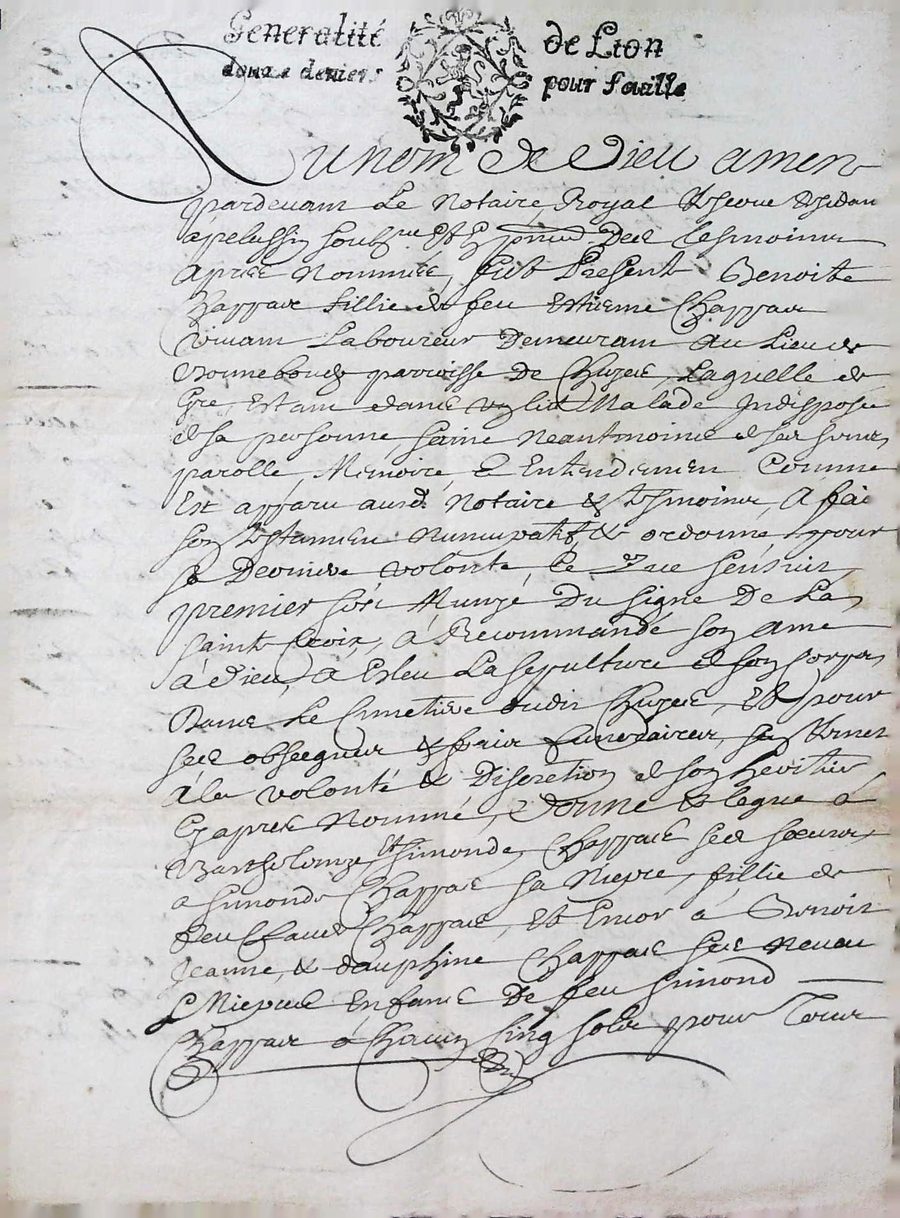 Generalité de Lion
douze deniers pour fueille
Au nom de Dieu amen
pardevant Le Notaire Royal
a pelussin soubsne Et des tesmoins
apres Nommés, fut Present Benoite
Chappare fillie de feu Estienne Chappare
vivant Laboureur Demeurant Au Lieu de
parroisse De Chuyes, Laquelle de
gre, Estant dans un lict Malade Indisposee
de sa personne, saine Neantmoins de ses sens
parolle, Memoire, & Entendemen Comme
Est apparu ausd. Notaire & tesmoins, A fai
son testamen Nuncupatif & ordonné pour
sa Derniere volonté Ce
premier sest Munye Du signe De La
sainte Croix, a Recommandé son ame
à Dieu, a Esleu La sepulture de son Corps
Dans Le Cimetiere dudit Chuyes, Et pour
ses obseques & frais funeraires, sen Remet
A la volonté & Discretion de son heritier
Cy apres Nommé, Donne & legue à
& Simonde Chappare ses soeurs
a Simonde Chappare sa Niepce, fillie de
feu Chappare, Et Encor à Benoit
Jeanne, & dauphine Chappare ses neveu
& Niepces Enfans De feu Simond
Chappare à Chacun Cinq solz pour Leur